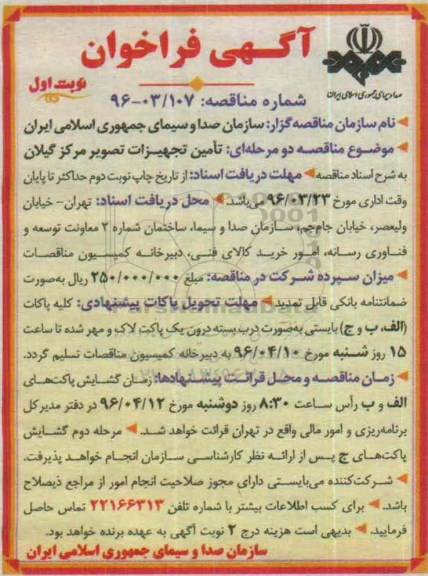 آگهی فراخوان
صدا و سیمای جمهوری اسلامی ایران
نوبت اول
شماره مناقصه: ۹۶-۰۳/۱۰۷
نام سازمان مناقصه گزار: سازمان صدا و سیمای جمهوری اسلامی ایران
موضوع مناقصه دو مرحله‌ای: تأمین تجهیزات تصویر مرکز گیلان
به شرح اسناد مناقصه مهلت دریافت اسناد: از تاریخ چاپ نوبت دوم حداکثر تا پایان
وقت اداری مورخ ۹۶/۰۳/۲۳ می‌باشد. محل دریافت اسناد: تهران- خیابان
ولیعصر، خیابان جام‌جم، سازمان صدا و سیما، ساختمان شماره ۲ معاونت توسعه و
فناوری رسانه، امور خرید کالای فنی، دبیرخانه کمیسیون مناقصات
میزان سپرده شرکت در مناقصه: مبلغ ۲۵۰/۰۰۰/۰۰۰ ریال به‌صورت
ضمانتنامه بانکی قابل تمدید مهلت تحویل پاکات پیشنهادی: کلیه پاکات
(الف، ب و ج) بایستی به‌صورت درب بسته درون یک پاکت لاک و مهر شده تا ساعت
۱۵ روز شنبه مورخ ۹۶/۰۴/۱۰ به دبیرخانه کمیسیون مناقصات تسلیم گردد.
زمان مناقصه و محل قرائت پیشنهادها: زمان گشایش پاکت‌های
الف و ب رأس ساعت ۸:۳۰ روز دوشنبه مورخ ۹۶/۰۴/۱۲ در دفتر مدیر کل
برنامه‌ریزی و امور مالی واقع در تهران قرائت خواهد شد. مرحله دوم گشایش
پاکت‌های ج پس از ارائه نظر کارشناسی سازمان انجام خواهد پذیرفت.
شرکت‌کننده می‌بایستی دارای مجوز صلاحیت انجام امور از مراجع ذیصلاح
باشد. برای کسب اطلاعات بیشتر با شماره تلفن ۲۲۱۶۶۳۱۳ تماس حاصل
فرمایید. بدیهی است هزینه درج ۲ نوبت آگهی به عهده برنده خواهد بود.
سازمان صدا و سیمای جمهوری اسلامی ایران